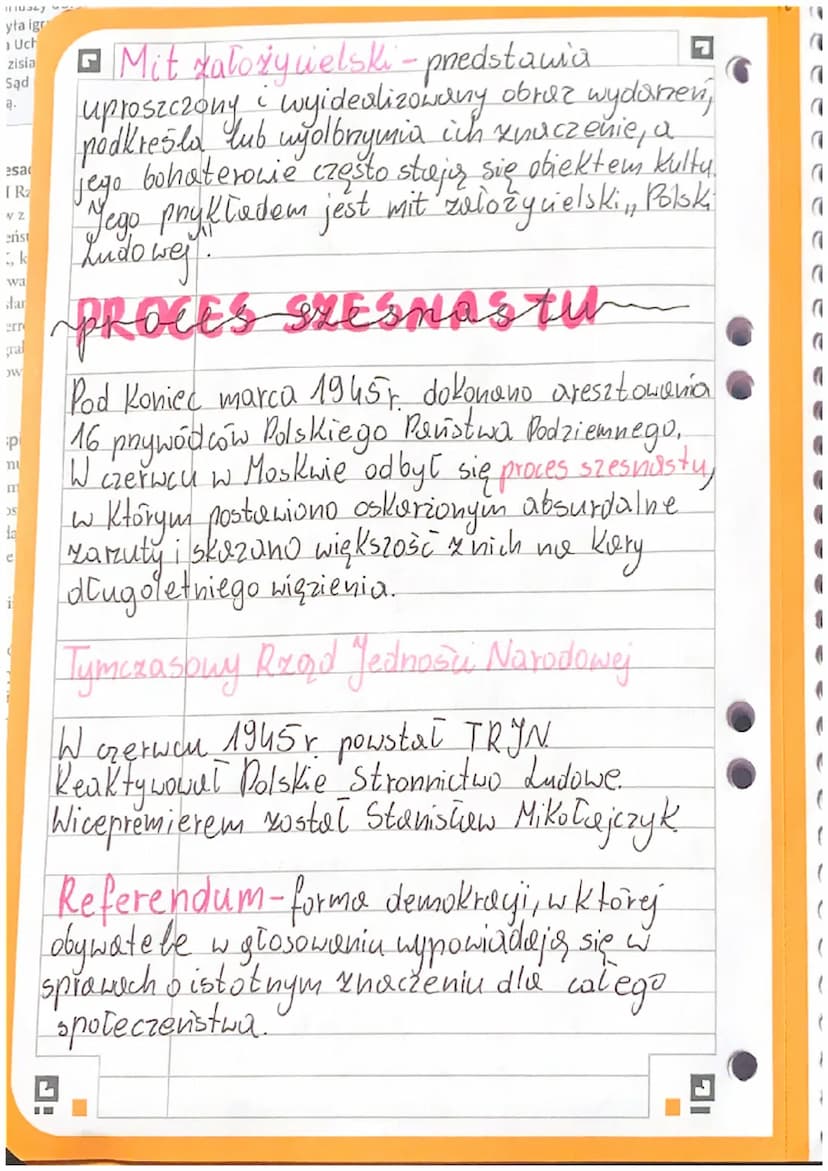 Mit założycielski - przedstawia
uproszczony i wyidealizowany obraz wydarzeń,
podkreśla lub wyolbrzymia ich znaczenie, a
jego bohaterowie często stają się obiektem kultu.
Jego przykładem jest mit założycielski „Polski
Ludowej".
PROCES SZESNASTU
Pod koniec marca 1945r. dokonano aresztowania
16 przywódców Polskiego Państwa Podziemnego.
W czerwcu w Moskwie odbył się proces szesnastu,
w którym postawiono oskarżonym absurdalne
zarzuty i skazano większość z nich na kary
długoletniego więzienia.
Tymczasowy Rząd Jedności Narodowej
W czerwcu 1945r. powstał TRJN.
Reaktywował Polskie Stronnictwo Ludowe.
Wicepremierem został Stanisław Mikołajczyk
Referendum - forma demokracji, w której
obywatele w głosowaniu wypowiadają się w
sprawach o istotnym znaczeniu dla całego
społeczeństwa.